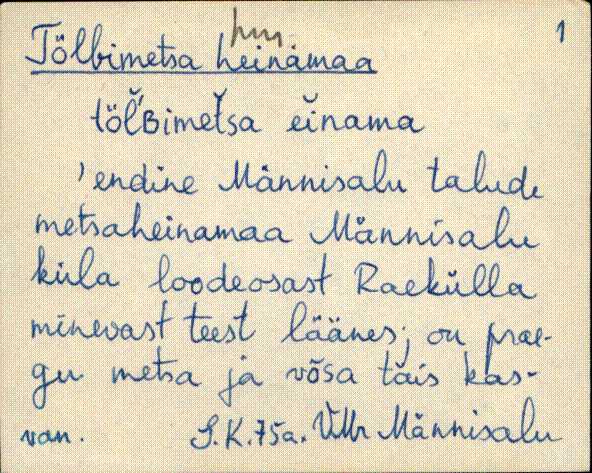 hm
1
Tölbimetsa heinamaa
töl̆'ʙimet̆sa ei̯nama
'endine Männisalu talude
metsaheinamaa Männisalu
küla loodeosast Raekülla
minevast teest läänes; on prae-
gu metsa ja võsa täis kas-
van. S.K. 75a. VMr Männisalu